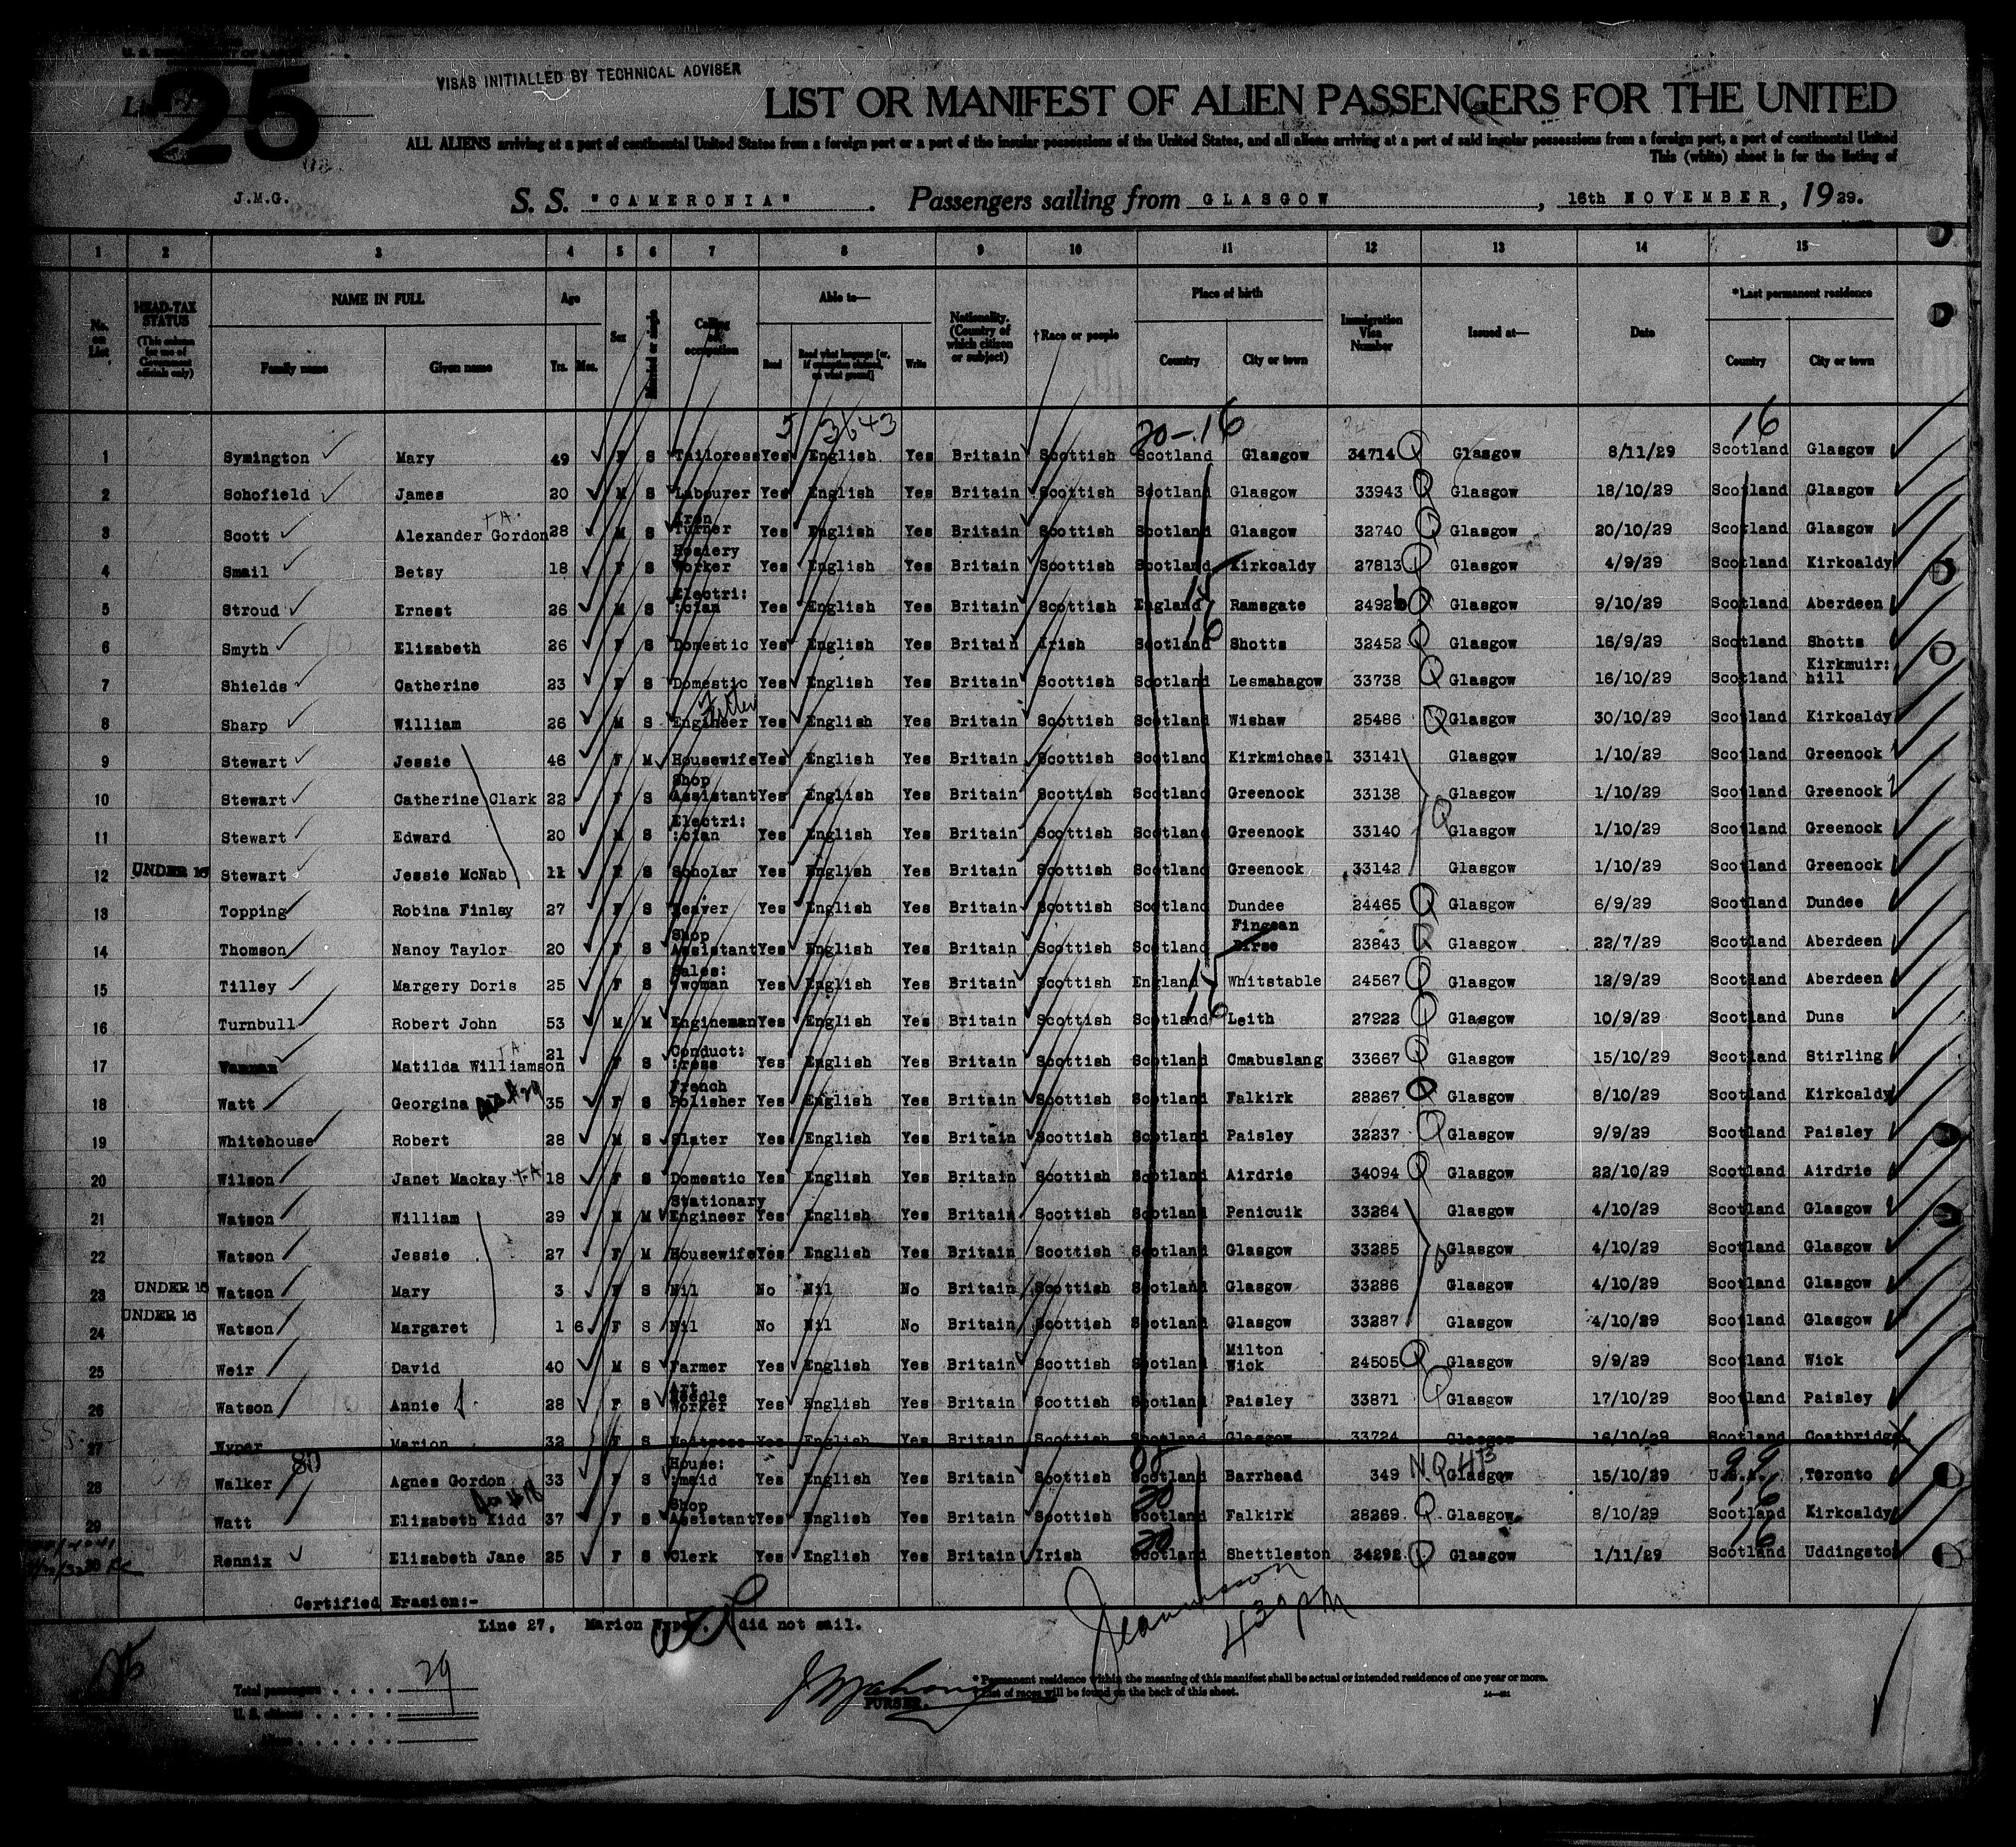 25
VISAS INITIALLED BY TECHNICAL ADVISER
LIST OR MANIFEST OF ALIEN PASSENGERS FOR THE UNITED
ALL ALIENS arriving at a port of continental United States from a foreign port or a port of the insular possessions of the United States, and all aliens arriving at a port of said insular possessions from a foreign port, a port of continental United
This (white) sheet is for the listing of
J.M.G. S. S. "CAMERONIA". Passengers sailing from GLASGOW, 16th NOVEMBER, 1929.
1 2 3 4 5 6 7 8 9 10 11 12 13 14 15
No. on List
HEAD-TAX STATUS (This column for use of Government officials only)
NAME IN FULL Family name Given name
Age Yrs. Mos.
Sex
Married or single
Calling or occupation
Able to— Read Read what language [or, if exemption claimed, on what ground] Write
Nationality. (Country of which citizen or subject)
†Race or people
Place of birth Country City or town
Immigration Visa Number
Issued at—
Date
*Last permanent residence Country City or town
5 3643 20-16 16
1 Symington Mary 49 F S Tailoress Yes English Yes Britain Scottish Scotland Glasgow 34714 Q Glasgow 8/11/29 Scotland Glasgow
2 Schofield James 20 M S Labourer Yes English Yes Britain Scottish Scotland Glasgow 33943 Q Glasgow 18/10/29 Scotland Glasgow
3 Scott Alexander Gordon 28 M S Iron Turner Yes English Yes Britain Scottish Scotland Glasgow 32740 Q Glasgow 20/10/29 Scotland Glasgow
4 Smail Betsy 18 F S Hosiery Worker Yes English Yes Britain Scottish Scotland Kirkcaldy 27813 Q Glasgow 4/9/29 Scotland Kirkcaldy
5 Stroud Ernest 26 M S Electri: :cian Yes English Yes Britain Scottish England Ramsgate 2492 Q Glasgow 9/10/29 Scotland Aberdeen
6 Smyth Elizabeth 26 F S Domestic Yes English Yes Britain Irish Scotland 16 Shotts 32452 Q Glasgow 16/9/29 Scotland Shotts
7 Shields Catherine 23 F S Domestic Yes English Yes Britain Scottish Scotland Lesmahagow 33738 Q Glasgow 16/10/29 Scotland Kirkmuir: hill
8 Sharp William 26 M S Engineer Fitter Yes English Yes Britain Scottish Scotland Wishaw 25486 Q Glasgow 30/10/29 Scotland Kirkcaldy
9 Stewart Jessie 46 F M Housewife Yes English Yes Britain Scottish Scotland Kirkmichael 33141 Glasgow 1/10/29 Scotland Greenock
10 Stewart Catherine Clark 22 F S Shop Assistant Yes English Yes Britain Scottish Scotland Greenock 33138 Glasgow 1/10/29 Scotland Greenock
11 Stewart Edward 20 M S Electri: :cian Yes English Yes Britain Scottish Scotland Greenock 33140 Q Glasgow 1/10/29 Scotland Greenock
12 UNDER 16 Stewart Jessie McNab 11 F S Scholar Yes English Yes Britain Scottish Scotland Greenock 33142 Glasgow 1/10/29 Scotland Greenock
13 Topping Robina Finlay 27 F S Weaver Yes English Yes Britain Scottish Scotland Dundee 24465 Q Glasgow 6/9/29 Scotland Dundee
14 Thomson Nancy Taylor 20 F S Shop Assistant Yes English Yes Britain Scottish Scotland Finzean Birse 23843 Q Glasgow 22/7/29 Scotland Aberdeen
15 Tilley Margery Doris 25 F S Sales: :woman Yes English Yes Britain Scottish England Whitstable 24567 Q Glasgow 12/9/29 Scotland Aberdeen
16 Turnbull Robert John 53 M M Engineman Yes English Yes Britain Scottish Scotland 16 Leith 27922 Q Glasgow 10/9/29 Scotland Duns
17 Matilda Williamson 21 F S Conduct: :ress Yes English Yes Britain Scottish Scotland Cmabuslang 33667 Q Glasgow 15/10/29 Scotland Stirling
18 Watt Georgina 35 F S French Polisher Yes English Yes Britain Scottish Scotland Falkirk 28267 Q Glasgow 8/10/29 Scotland Kirkcaldy
19 Whitehouse Robert 28 M S Slater Yes English Yes Britain Scottish Scotland Paisley 32237 Q Glasgow 9/9/29 Scotland Paisley
20 Wilson Janet Mackay 18 F S Domestic Yes English Yes Britain Scottish Scotland Airdrie 34094 Q Glasgow 22/10/29 Scotland Airdrie
21 Watson William 29 M M Stationary Engineer Yes English Yes Britain Scottish Scotland Penicuik 33284 Glasgow 4/10/29 Scotland Glasgow
22 Watson Jessie 27 F M Housewife Yes English Yes Britain Scottish Scotland Glasgow 33285 Q Glasgow 4/10/29 Scotland Glasgow
23 UNDER 16 Watson Mary 3 F S Nil No Nil No Britain Scottish Scotland Glasgow 33286 Glasgow 4/10/29 Scotland Glasgow
24 UNDER 16 Watson Margaret 1 6 F S Nil No Nil No Britain Scottish Scotland Glasgow 33287 Glasgow 4/10/29 Scotland Glasgow
25 Weir David 40 M S Farmer Yes English Yes Britain Scottish Scotland Milton Wick 24505 Q Glasgow 9/9/29 Scotland Wick
26 Watson Annie 28 F S Art Needle Worker Yes English Yes Britain Scottish Scotland Paisley 33871 Q Glasgow 17/10/29 Scotland Paisley
27 Wyper Marion 32 F S Waitress Yes English Yes Britain Scottish Scotland Glasgow 33724 Glasgow 16/10/29 Scotland Coatbridge
28 Walker 80 Agnes Gordon 33 F S House: :maid Yes English Yes Britain Scottish Scotland Barrhead 349 N.Q. 4B Glasgow 15/10/29 Toronto
29 Watt Elizabeth Kidd 37 F S Shop Assistant Yes English Yes Britain Scottish Scotland Falkirk 28269 Q Glasgow 8/10/29 Scotland Kirkcaldy
30 Rennix Elizabeth Jane 25 F S Clerk Yes English Yes Britain Irish Scotland Shettleston 34292 Q Glasgow 1/11/29 Scotland Uddingston
Certified Erasion:-
Line 27, Marion Wyper. did not sail.
430 PM
Total passengers 29
U. S. citizens
Aliens
PURSER.
* Permanent residence within the meaning of this manifest shall be actual or intended residence of one year or more.
† List of races will be found on the back of this sheet.